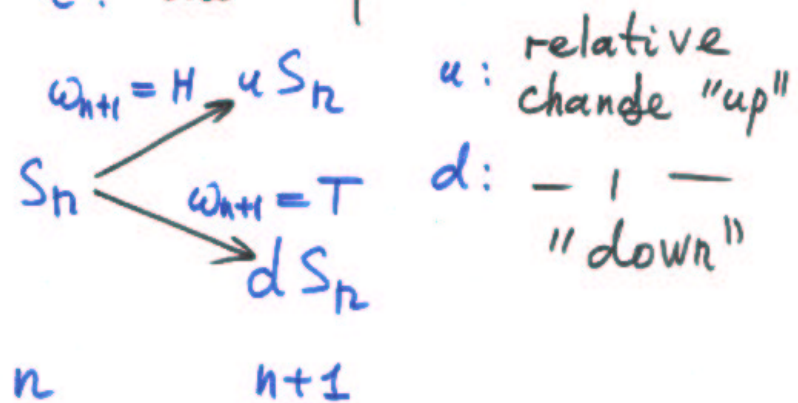 ω_{n+1} = H u S_n
S_n
ω_{n+1} = T
d S_n
n n+1
u: relative
change "up"
d: — ı —
"down"